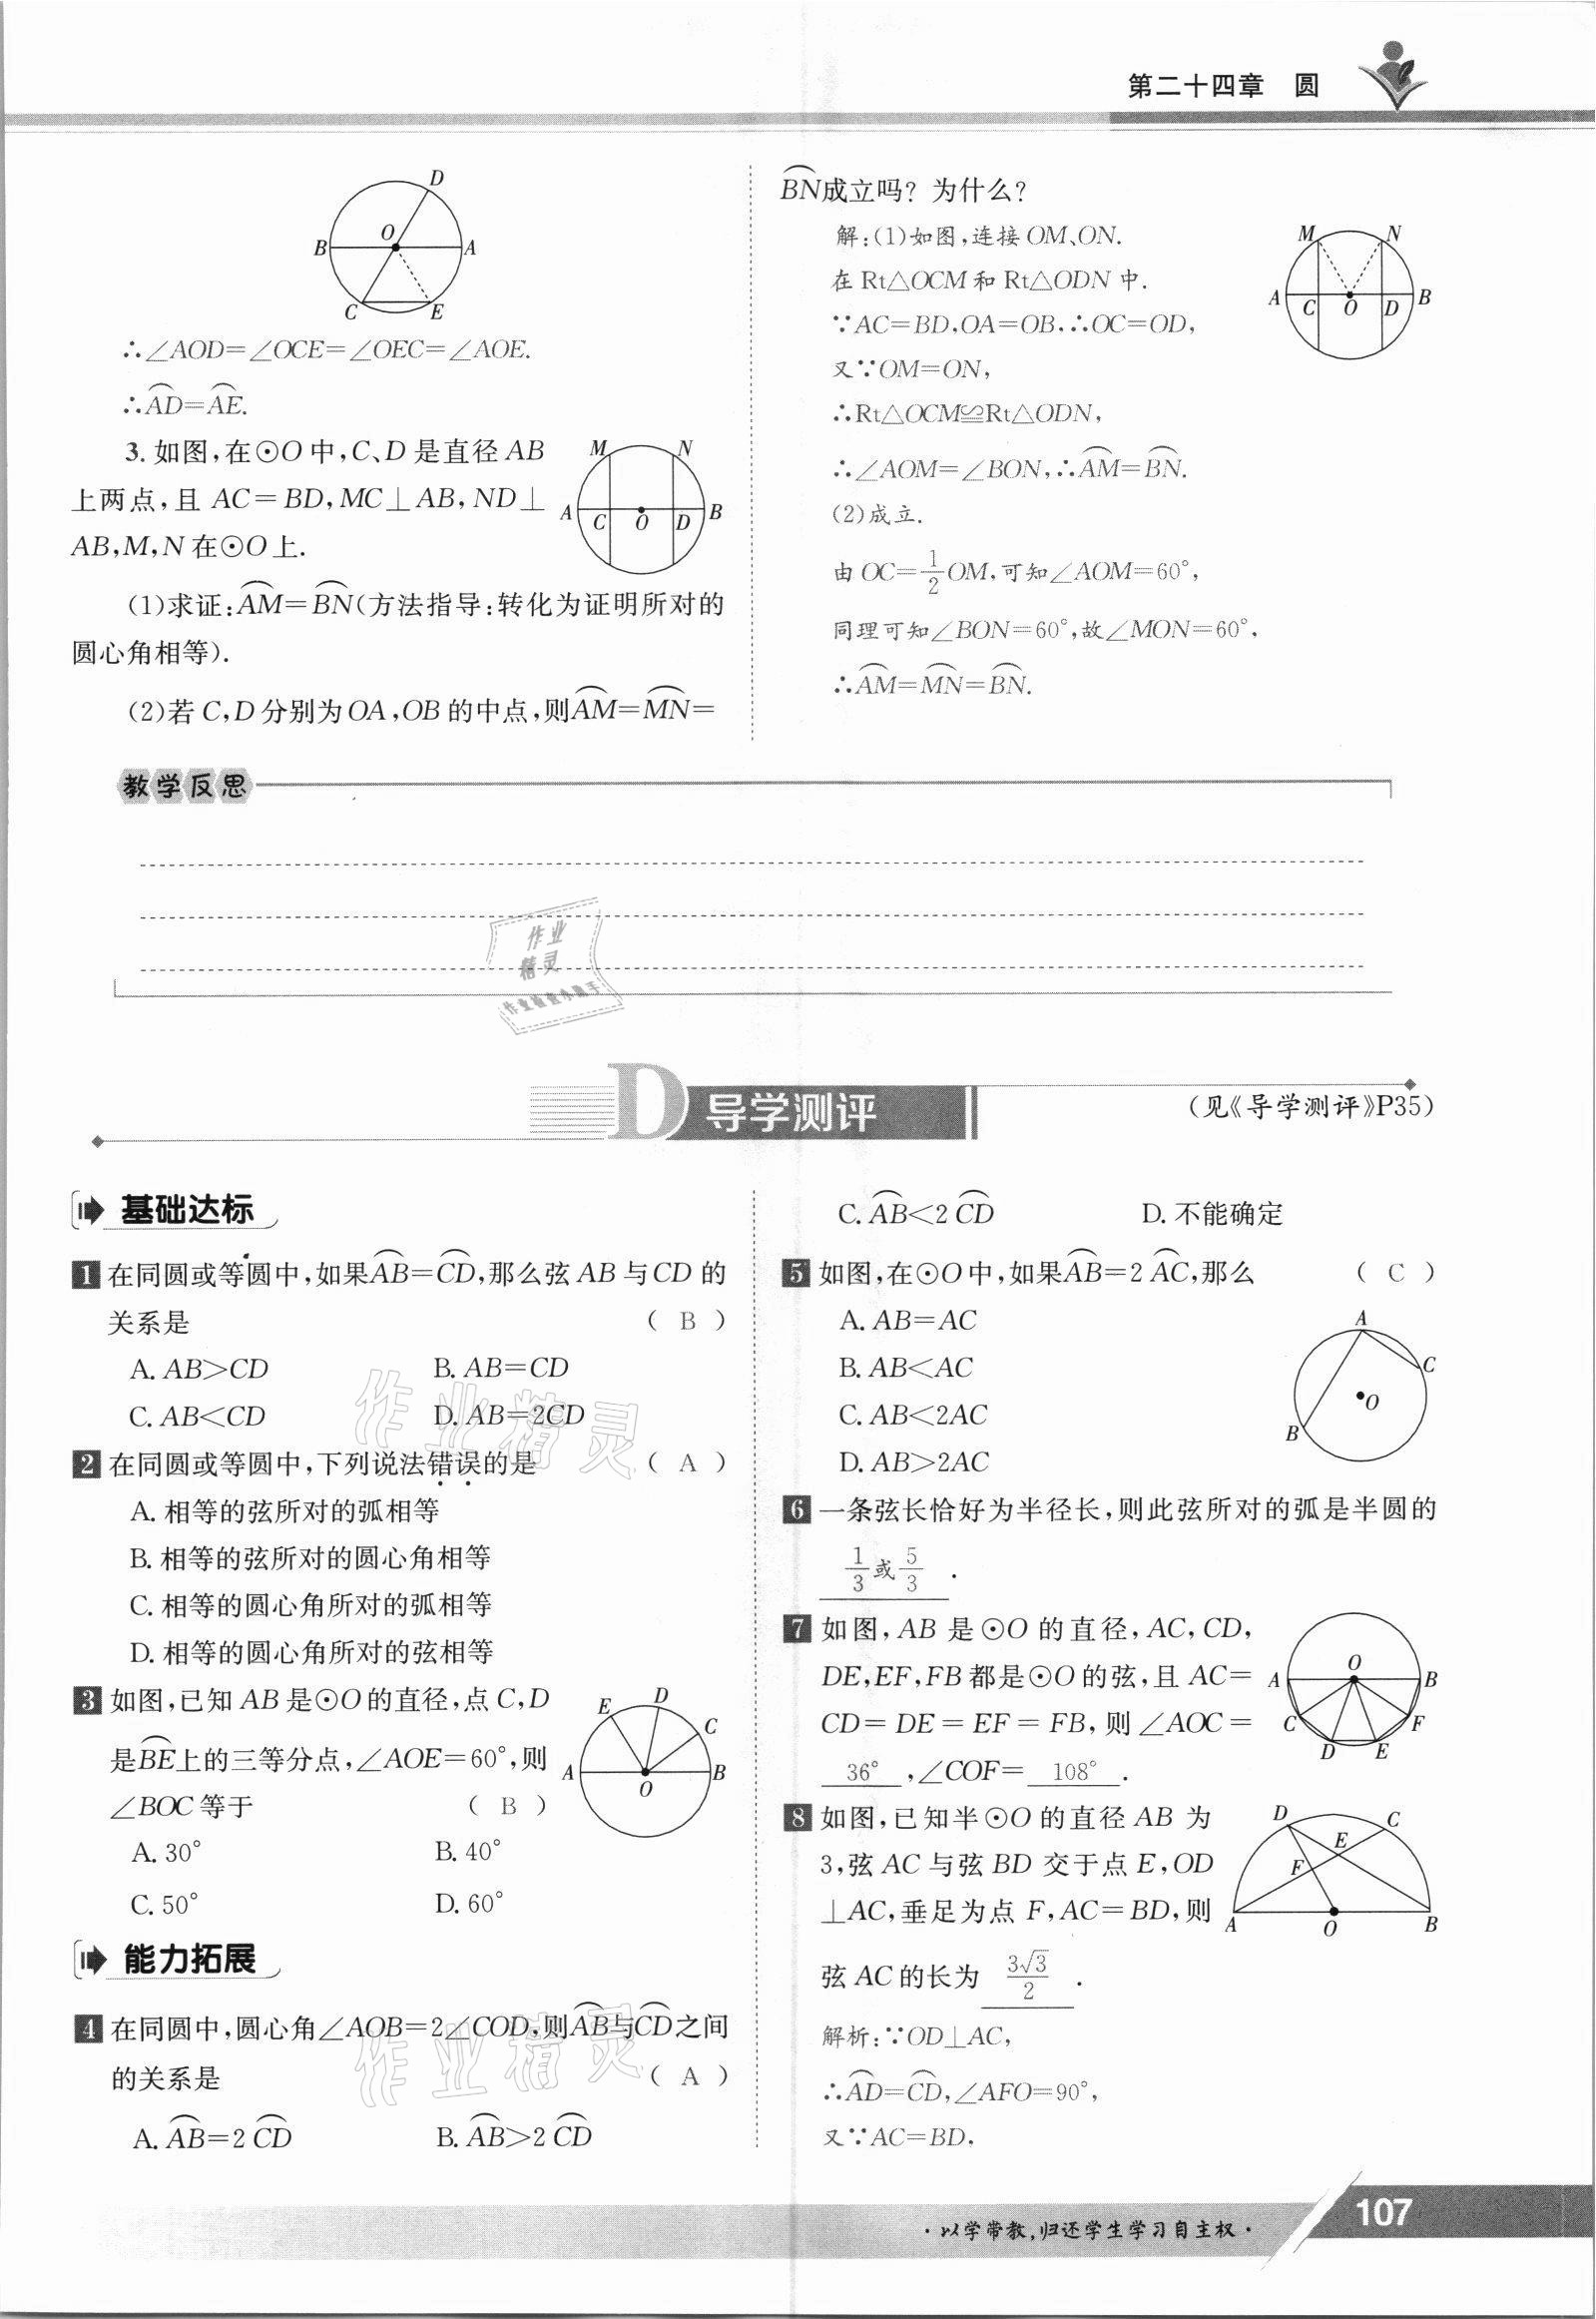 第二十四章 圆
D
O
B
A
C
E
∴∠AOD=∠OCE=∠OEC=∠AOE.
∴AD=AE.
3. 如图,在⊙O中,C、D是直径AB
上两点,且 AC=BD,MC⊥AB,ND⊥
AB,M,N在⊙O上.
M N
A C O D B
(1)求证:AM=BN(方法指导:转化为证明所对的
圆心角相等).
(2)若C,D分别为OA,OB的中点,则AM=MN=
BN成立吗? 为什么?
解:(1)如图,连接OM、ON.
在Rt△OCM和Rt△ODN中.
∵AC=BD,OA=OB,∴OC=OD,
又∵OM=ON,
∴Rt△OCM≌Rt△ODN,
∴∠AOM=∠BON,∴AM=BN.
(2)成立.
由OC=1/2OM,可知∠AOM=60°,
同理可知∠BON=60°,故∠MON=60°,
∴AM=MN=BN.
M N
A C O D B
教学反思
作业
精灵
D 导学测评
(见《导学测评》P35)
基础达标
1 在同圆或等圆中,如果AB=CD,那么弦AB与CD的
关系是 ( B )
A. AB>CD B. AB=CD
C. AB<CD D. AB=2CD
2 在同圆或等圆中,下列说法错误的是 ( A )
A. 相等的弦所对的弧相等
B. 相等的弦所对的圆心角相等
C. 相等的圆心角所对的弧相等
D. 相等的圆心角所对的弦相等
3 如图,已知AB是⊙O的直径,点C,D
是BE上的三等分点,∠AOE=60°,则
∠BOC等于 ( B )
A. 30° B. 40°
C. 50° D. 60°
E D C
A O B
能力拓展
4 在同圆中,圆心角∠AOB=2∠COD,则AB与CD之间
的关系是 ( A )
A. AB=2 CD B. AB>2 CD
C. AB<2 CD D. 不能确定
5 如图,在⊙O中,如果AB=2 AC,那么 ( C )
A. AB=AC
B. AB<AC
C. AB<2AC
D. AB>2AC
A
C
O
B
6 一条弦长恰好为半径长,则此弦所对的弧是半圆的
1/3或5/3.
7 如图,AB是⊙O的直径,AC,CD,
DE,EF,FB都是⊙O的弦,且AC=
CD=DE=EF=FB,则∠AOC=
36°,∠COF=108°.
O
A B
C F
D E
8 如图,已知半⊙O的直径AB为
3,弦AC与弦BD交于点E,OD
⊥AC,垂足为点F,AC=BD,则
弦AC的长为 3√3/2.
D C
E
F
A O B
解析:∵OD⊥AC,
∴AD=CD,∠AFO=90°,
又∵AC=BD,
作业精灵
作业精灵
·以学带教,归还学生学习自主权·
107